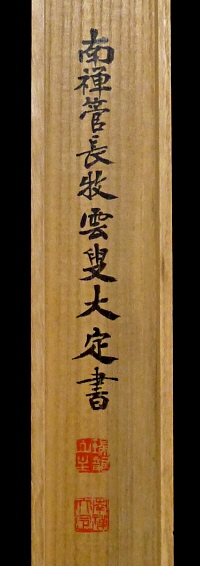 南禅管長牧雲叟大定書